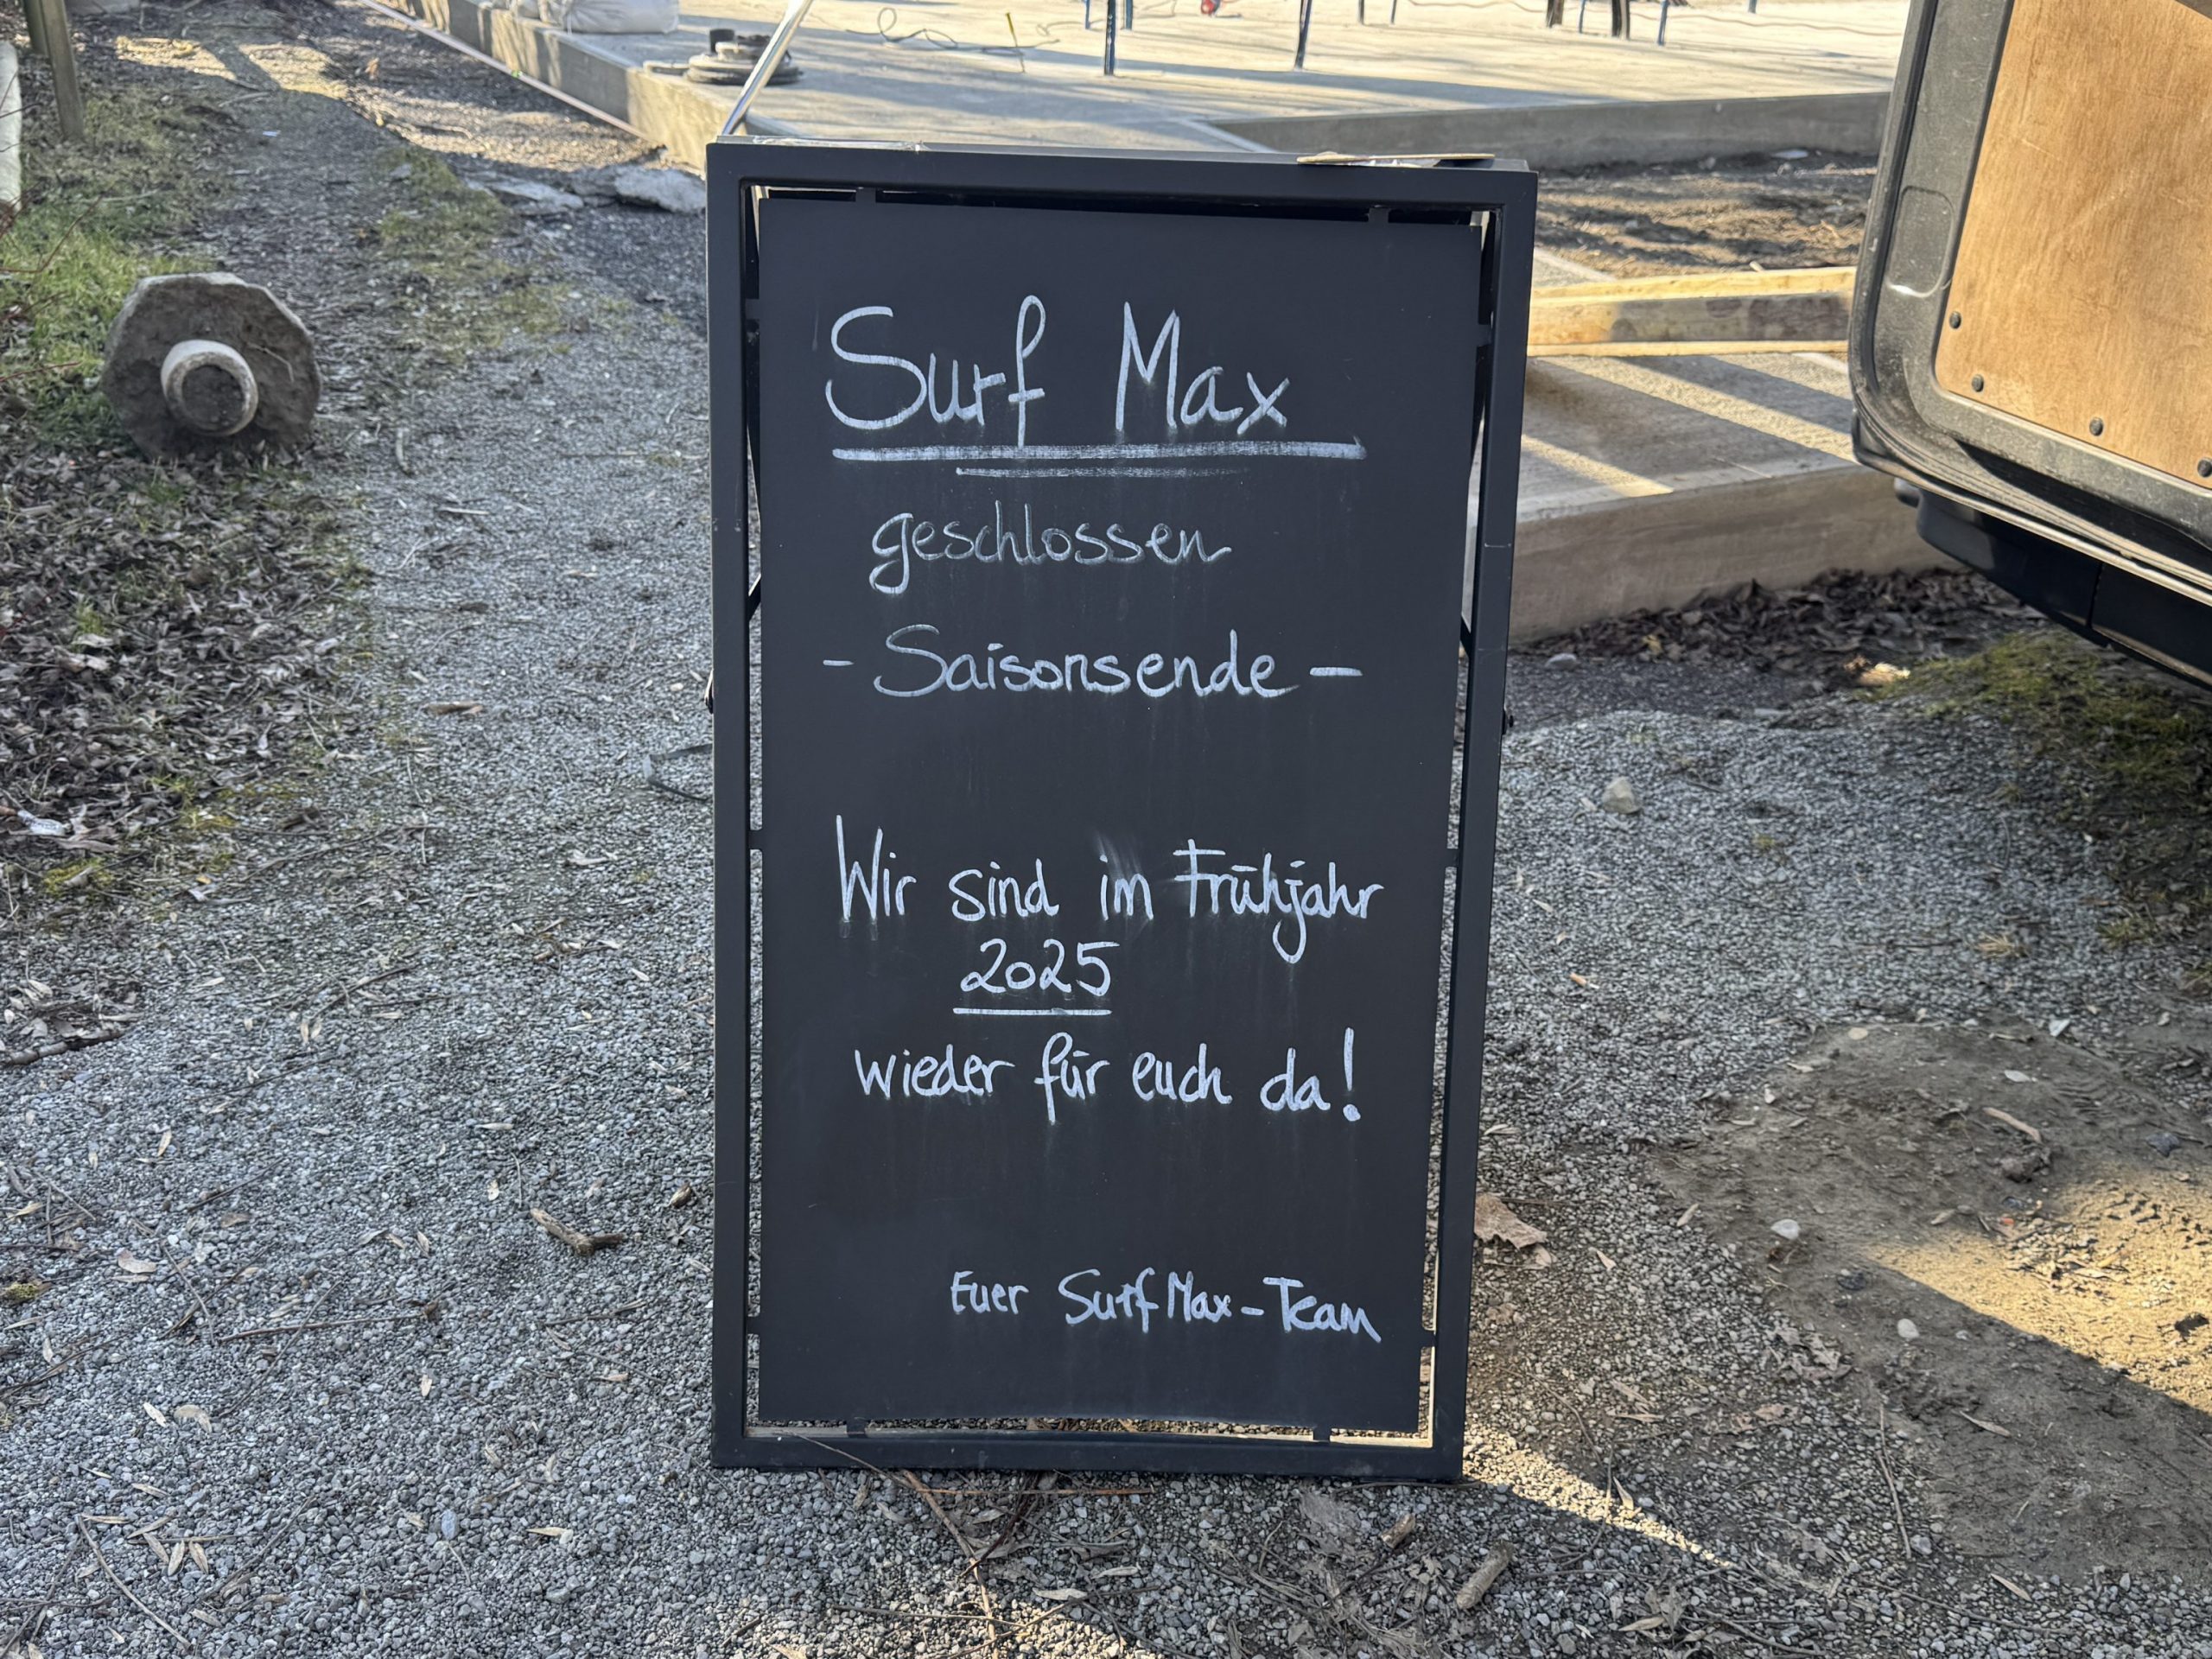 Surf Max
geschlossen
- Saisonsende -
Wir sind im Frühjahr
2025
wieder für euch da!
Euer Surf Max-Team